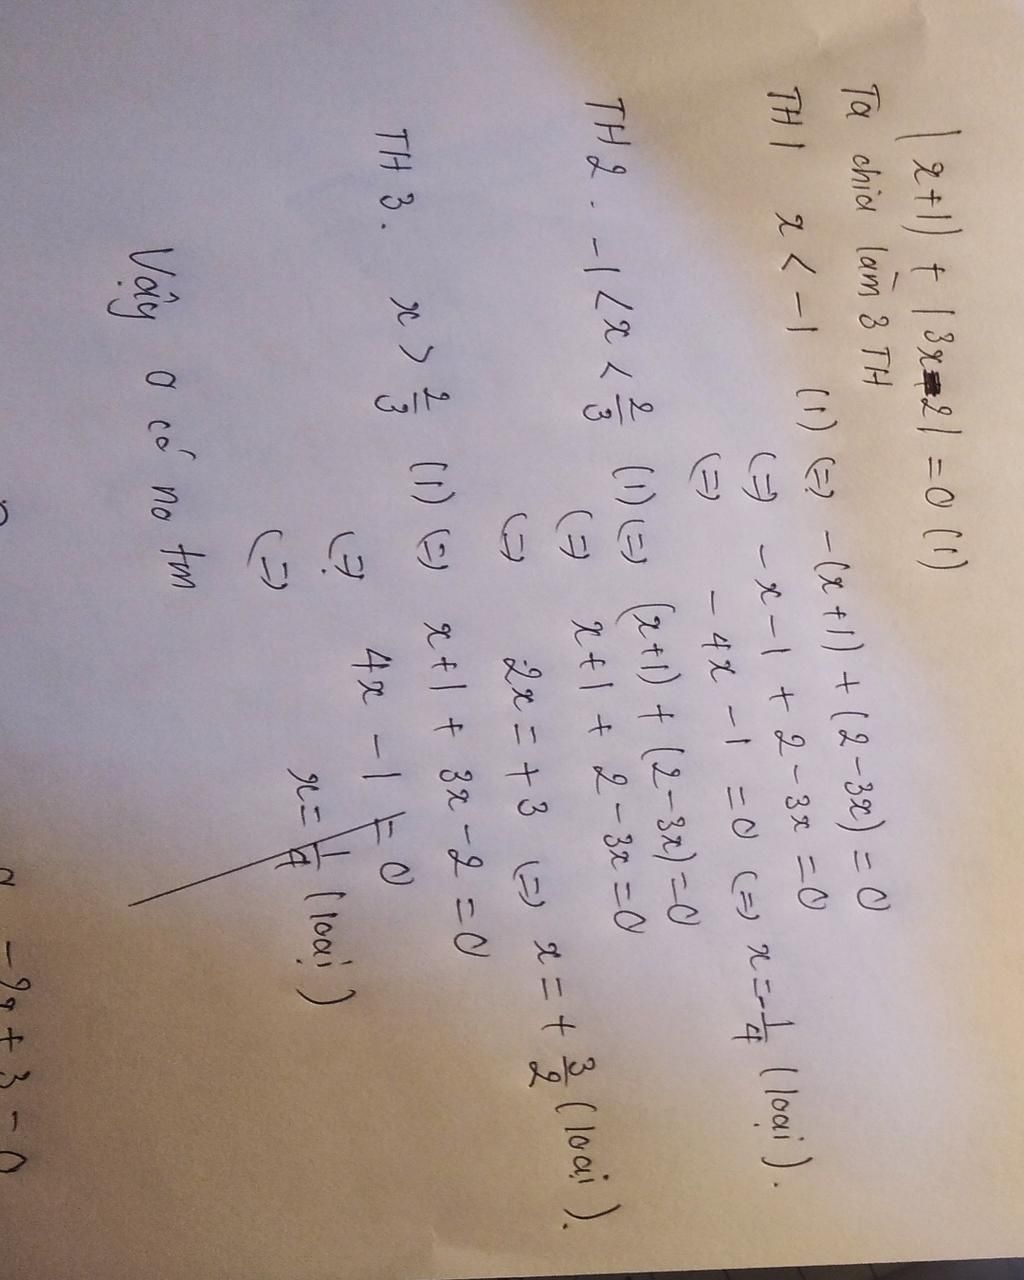 |x+1| + |3x-2| = 0 (1)
Ta chia làm 3 TH
TH1 x < -1 (1) (=) -(x+1) + (2-3x) = 0
(=) -x-1 + 2-3x = 0
(=) -4x -1 = 0 (=) x = -1/4 (loại).
TH2. -1 < x < 2/3 (1) (=) (x+1) + (2-3x) = 0
(=) x+1 + 2-3x = 0
(=) 2x = +3 (=) x = + 3/2 (loại).
TH3. x > 2/3 (1) (=) x+1 + 3x-2 = 0
(=) 4x -1 = 0
(=) x = 1/4 (loại)
Vậy 0 có no tm
-9x + 3 = 0